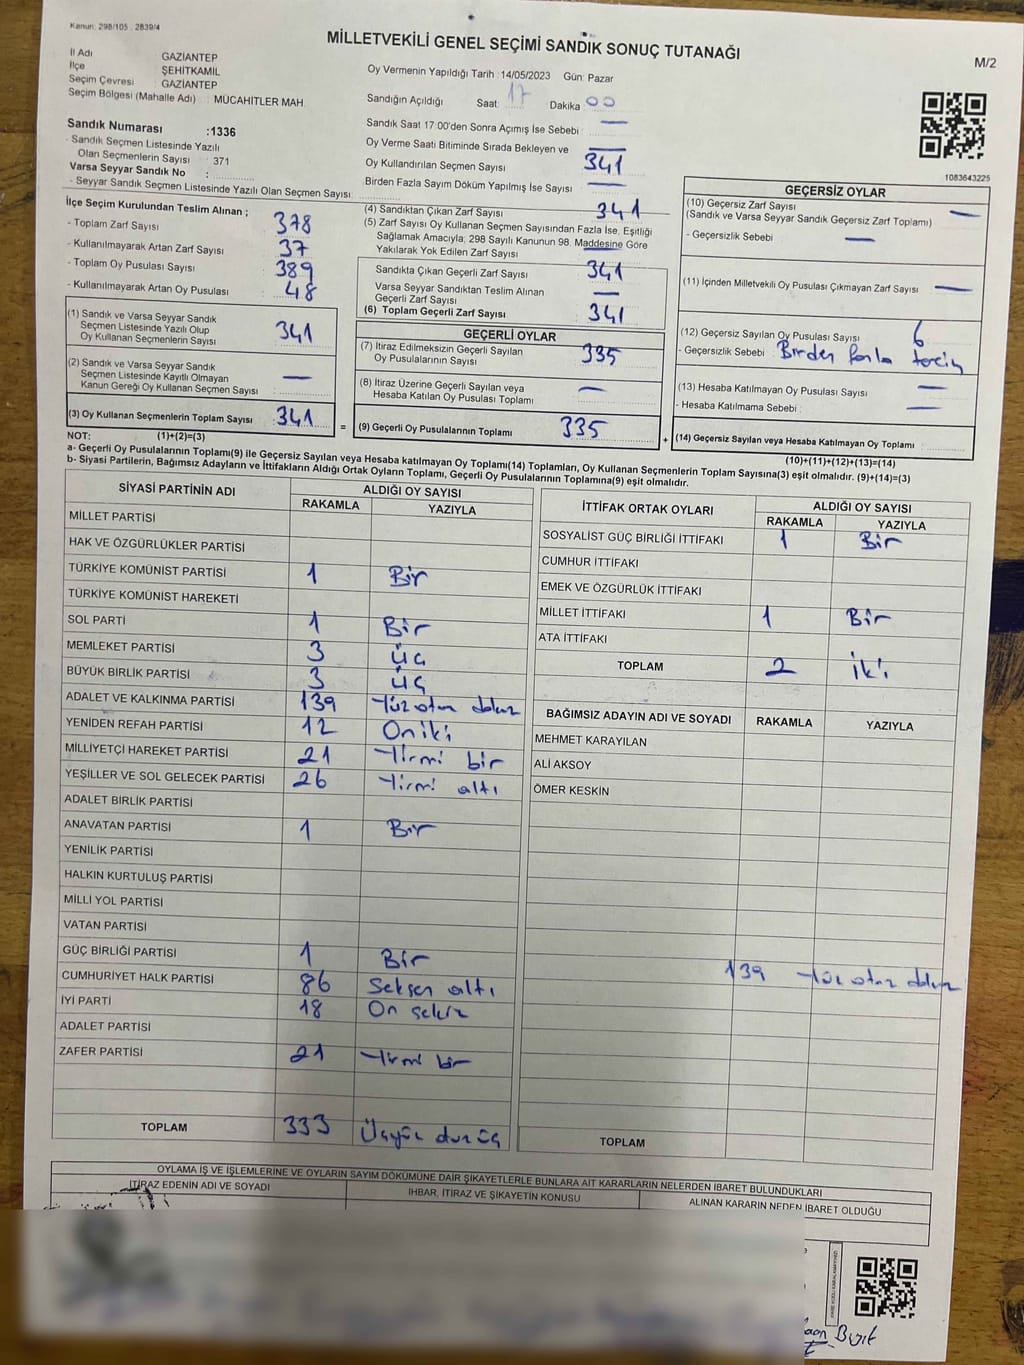 Kanun: 298/105 , 2839/4
MİLLETVEKİLİ GENEL SEÇİMİ SANDIK SONUÇ TUTANAĞI
M/2
İl Adı GAZİANTEP
İlçe ŞEHİTKAMİL
Seçim Çevresi GAZİANTEP
Seçim Bölgesi (Mahalle Adı) : MÜCAHİTLER MAH.
Oy Vermenin Yapıldığı Tarih : 14/05/2023 Gün: Pazar
Sandığın Açıldığı Saat: 17 Dakika 00
Sandık Saat 17:00'den Sonra Açımış İse Sebebi : —
Oy Verme Saati Bitiminde Sırada Bekleyen ve
Oy Kullandırılan Seçmen Sayısı 341
Birden Fazla Sayım Döküm Yapılmış İse Sayısı —
1083643225
Sandık Numarası :1336
- Sandık Seçmen Listesinde Yazılı
Olan Seçmenlerin Sayısı : 371
Varsa Seyyar Sandık No :
- Seyyar Sandık Seçmen Listesinde Yazılı Olan Seçmen Sayısı:
İlçe Seçim Kurulundan Teslim Alınan ;
- Toplam Zarf Sayısı 378
- Kullanılmayarak Artan Zarf Sayısı 37
- Toplam Oy Pusulası Sayısı 389
- Kullanılmayarak Artan Oy Pusulası : 48
(1) Sandık ve Varsa Seyyar Sandık
Seçmen Listesinde Yazılı Olup
Oy Kullanan Seçmenlerin Sayısı 341
(2) Sandık ve Varsa Seyyar Sandık
Seçmen Listesinde Kayıtlı Olmayan
Kanun Gereği Oy Kullanan Seçmen Sayısı —
(3) Oy Kullanan Seçmenlerin Toplam Sayısı 341
(1)+(2)=(3)
(4) Sandıktan Çıkan Zarf Sayısı 341
(5) Zarf Sayısı Oy Kullanan Seçmen Sayısından Fazla İse, Eşitliği
Sağlamak Amacıyla; 298 Sayılı Kanunun 98. Maddesine Göre
Yakılarak Yok Edilen Zarf Sayısı —
Sandıkta Çıkan Geçerli Zarf Sayısı 341
Varsa Seyyar Sandıktan Teslim Alınan
Geçerli Zarf Sayısı —
(6) Toplam Geçerli Zarf Sayısı 341
GEÇERLİ OYLAR
(7) İtiraz Edilmeksizin Geçerli Sayılan
Oy Pusulalarının Sayısı 335
(8) İtiraz Üzerine Geçerli Sayılan veya
Hesaba Katılan Oy Pusulası Toplamı —
= (9) Geçerli Oy Pusulalarının Toplamı 335
GEÇERSİZ OYLAR
(10) Geçersiz Zarf Sayısı —
(Sandık ve Varsa Seyyar Sandık Geçersiz Zarf Toplamı)
- Geçersizlik Sebebi —
(11) İçinden Milletvekili Oy Pusulası Çıkmayan Zarf Sayısı —
(12) Geçersiz Sayılan Oy Pusulası Sayısı 6
- Geçersizlik Sebebi Birden fazla tercih
(13) Hesaba Katılmayan Oy Pusulası Sayısı —
- Hesaba Katılmama Sebebi : —
+ (14) Geçersiz Sayılan veya Hesaba Katılmayan Oy Toplamı :
(10)+(11)+(12)+(13)=(14)
NOT:
a- Geçerli Oy Pusulalarının Toplamı(9) ile Geçersiz Sayılan veya Hesaba katılmayan Oy Toplamı(14) Toplamları, Oy Kullanan Seçmenlerin Toplam Sayısına(3) eşit olmalıdır. (9)+(14)=(3)
b- Siyasi Partilerin, Bağımsız Adayların ve İttifakların Aldığı Ortak Oyların Toplamı, Geçerli Oy Pusulalarının Toplamına(9) eşit olmalıdır.
SİYASİ PARTİNİN ADI ALDIĞI OY SAYISI
RAKAMLA YAZIYLA
MİLLET PARTİSİ
HAK VE ÖZGÜRLÜKLER PARTİSİ
TÜRKİYE KOMÜNİST PARTİSİ 1 Bir
TÜRKİYE KOMÜNİST HAREKETİ
SOL PARTİ 1 Bir
MEMLEKET PARTİSİ 3 Üç
BÜYÜK BİRLİK PARTİSİ 3 Üç
ADALET VE KALKINMA PARTİSİ 139 Yüz otuz dokuz
YENİDEN REFAH PARTİSİ 12 Oniki
MİLLİYETÇİ HAREKET PARTİSİ 21 Yirmi bir
YEŞİLLER VE SOL GELECEK PARTİSİ 26 Yirmi altı
ADALET BİRLİK PARTİSİ
ANAVATAN PARTİSİ 1 Bir
YENİLİK PARTİSİ
HALKIN KURTULUŞ PARTİSİ
MİLLİ YOL PARTİSİ
VATAN PARTİSİ
GÜÇ BİRLİĞİ PARTİSİ 1 Bir
CUMHURİYET HALK PARTİSİ 86 Seksen altı
İYİ PARTİ 18 On sekiz
ADALET PARTİSİ
ZAFER PARTİSİ 21 Yirmi bir
TOPLAM 333
İTTİFAK ORTAK OYLARI ALDIĞI OY SAYISI
RAKAMLA YAZIYLA
SOSYALİST GÜÇ BİRLİĞİ İTTİFAKI 1 Bir
CUMHUR İTTİFAKI
EMEK VE ÖZGÜRLÜK İTTİFAKI
MİLLET İTTİFAKI 1 Bir
ATA İTTİFAKI
TOPLAM 2 İki
BAĞIMSIZ ADAYIN ADI VE SOYADI RAKAMLA YAZIYLA
MEHMET KARAYILAN
ALİ AKSOY
ÖMER KESKİN
139 Yüz otuz dokuz
TOPLAM
OYLAMA İŞ VE İŞLEMLERİNE VE OYLARIN SAYIM DÖKÜMÜNE DAİR ŞİKAYETLERLE BUNLARA AİT KARARLARIN NELERDEN İBARET BULUNDUKLARI
İTİRAZ EDENİN ADI VE SOYADI
İHBAR, İTİRAZ VE ŞİKAYETİN KONUSU
ALINAN KARARIN NEDEN İBARET OLDUĞU